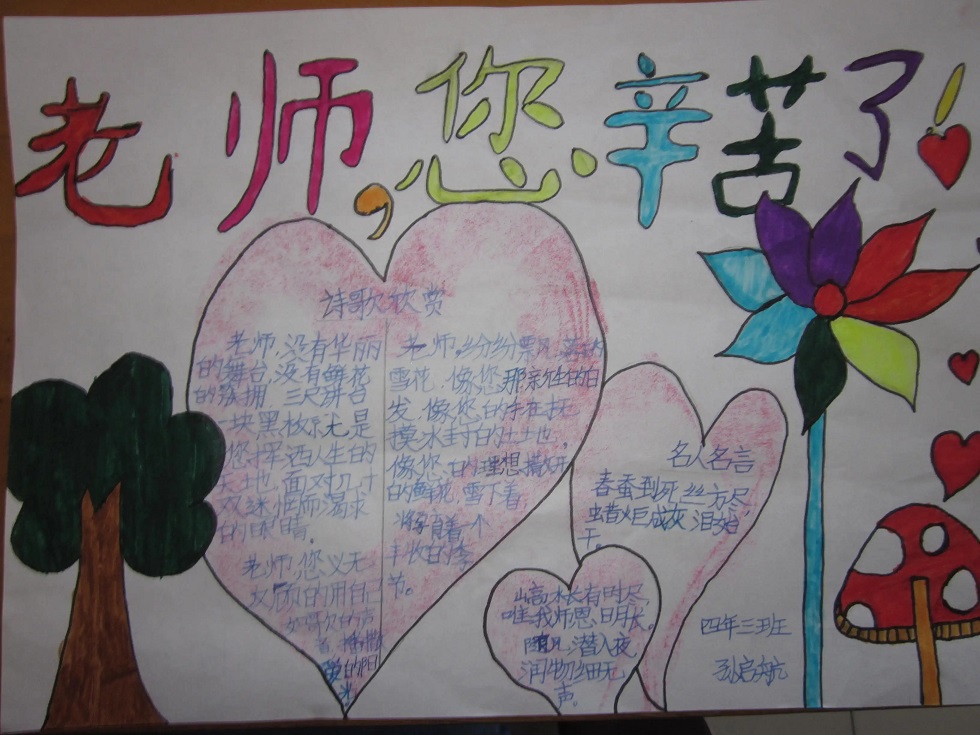 老师,您辛苦了!
诗歌欣赏
老师,没有华丽
的舞台,没有鲜花
的簇拥,三尺讲台
一块黑板就是
您挥洒人生的
天地,面对几十
双迷惘而渴求
的眼睛。
老师,您义无
反顾的用自己
如歌的声
音,播撒
爱的阳
光
老师,纷纷飘落的
雪花,像您那新生的白
发,像您的手在抚
摸冰封的土地,
像您的理想播放
的鲜花,雪下着,
将有着一个
丰收的季
节。
名人名言
春蚕到死,丝方尽,
蜡炬成灰泪始
干。
山高水长有时尽,
唯我师恩日月长。
随风潜入夜,
润物细无
声。
四年三班
孙启航